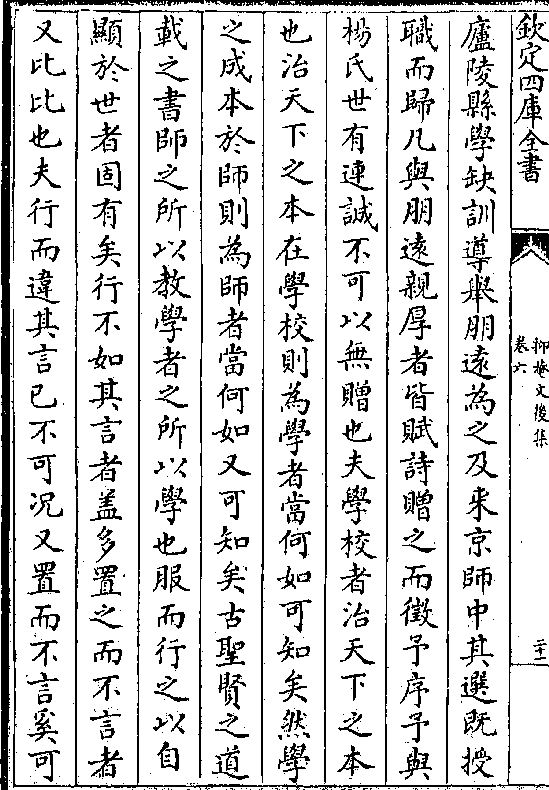 欽定四庫全書
抑菴文後集
卷六
二十一
廬陵縣學缺訓導舉朋遠為之及來京師中其選既授
職而歸凡與朋遠親厚者皆賦詩贈之而徵予序予與
楊氏世有連誠不可以無贈也夫學校者治天下之本
也治天下之本在學校則為學者當何如可知矣然學
之成本於師則為師者當何如又可知矣古聖賢之道
載之書師之所以教學者之所以學也服而行之以自
顯於世者固有矣行不如其言者葢多置之而不言者
又比比也夫行而違其言已不可況又置而不言奚可